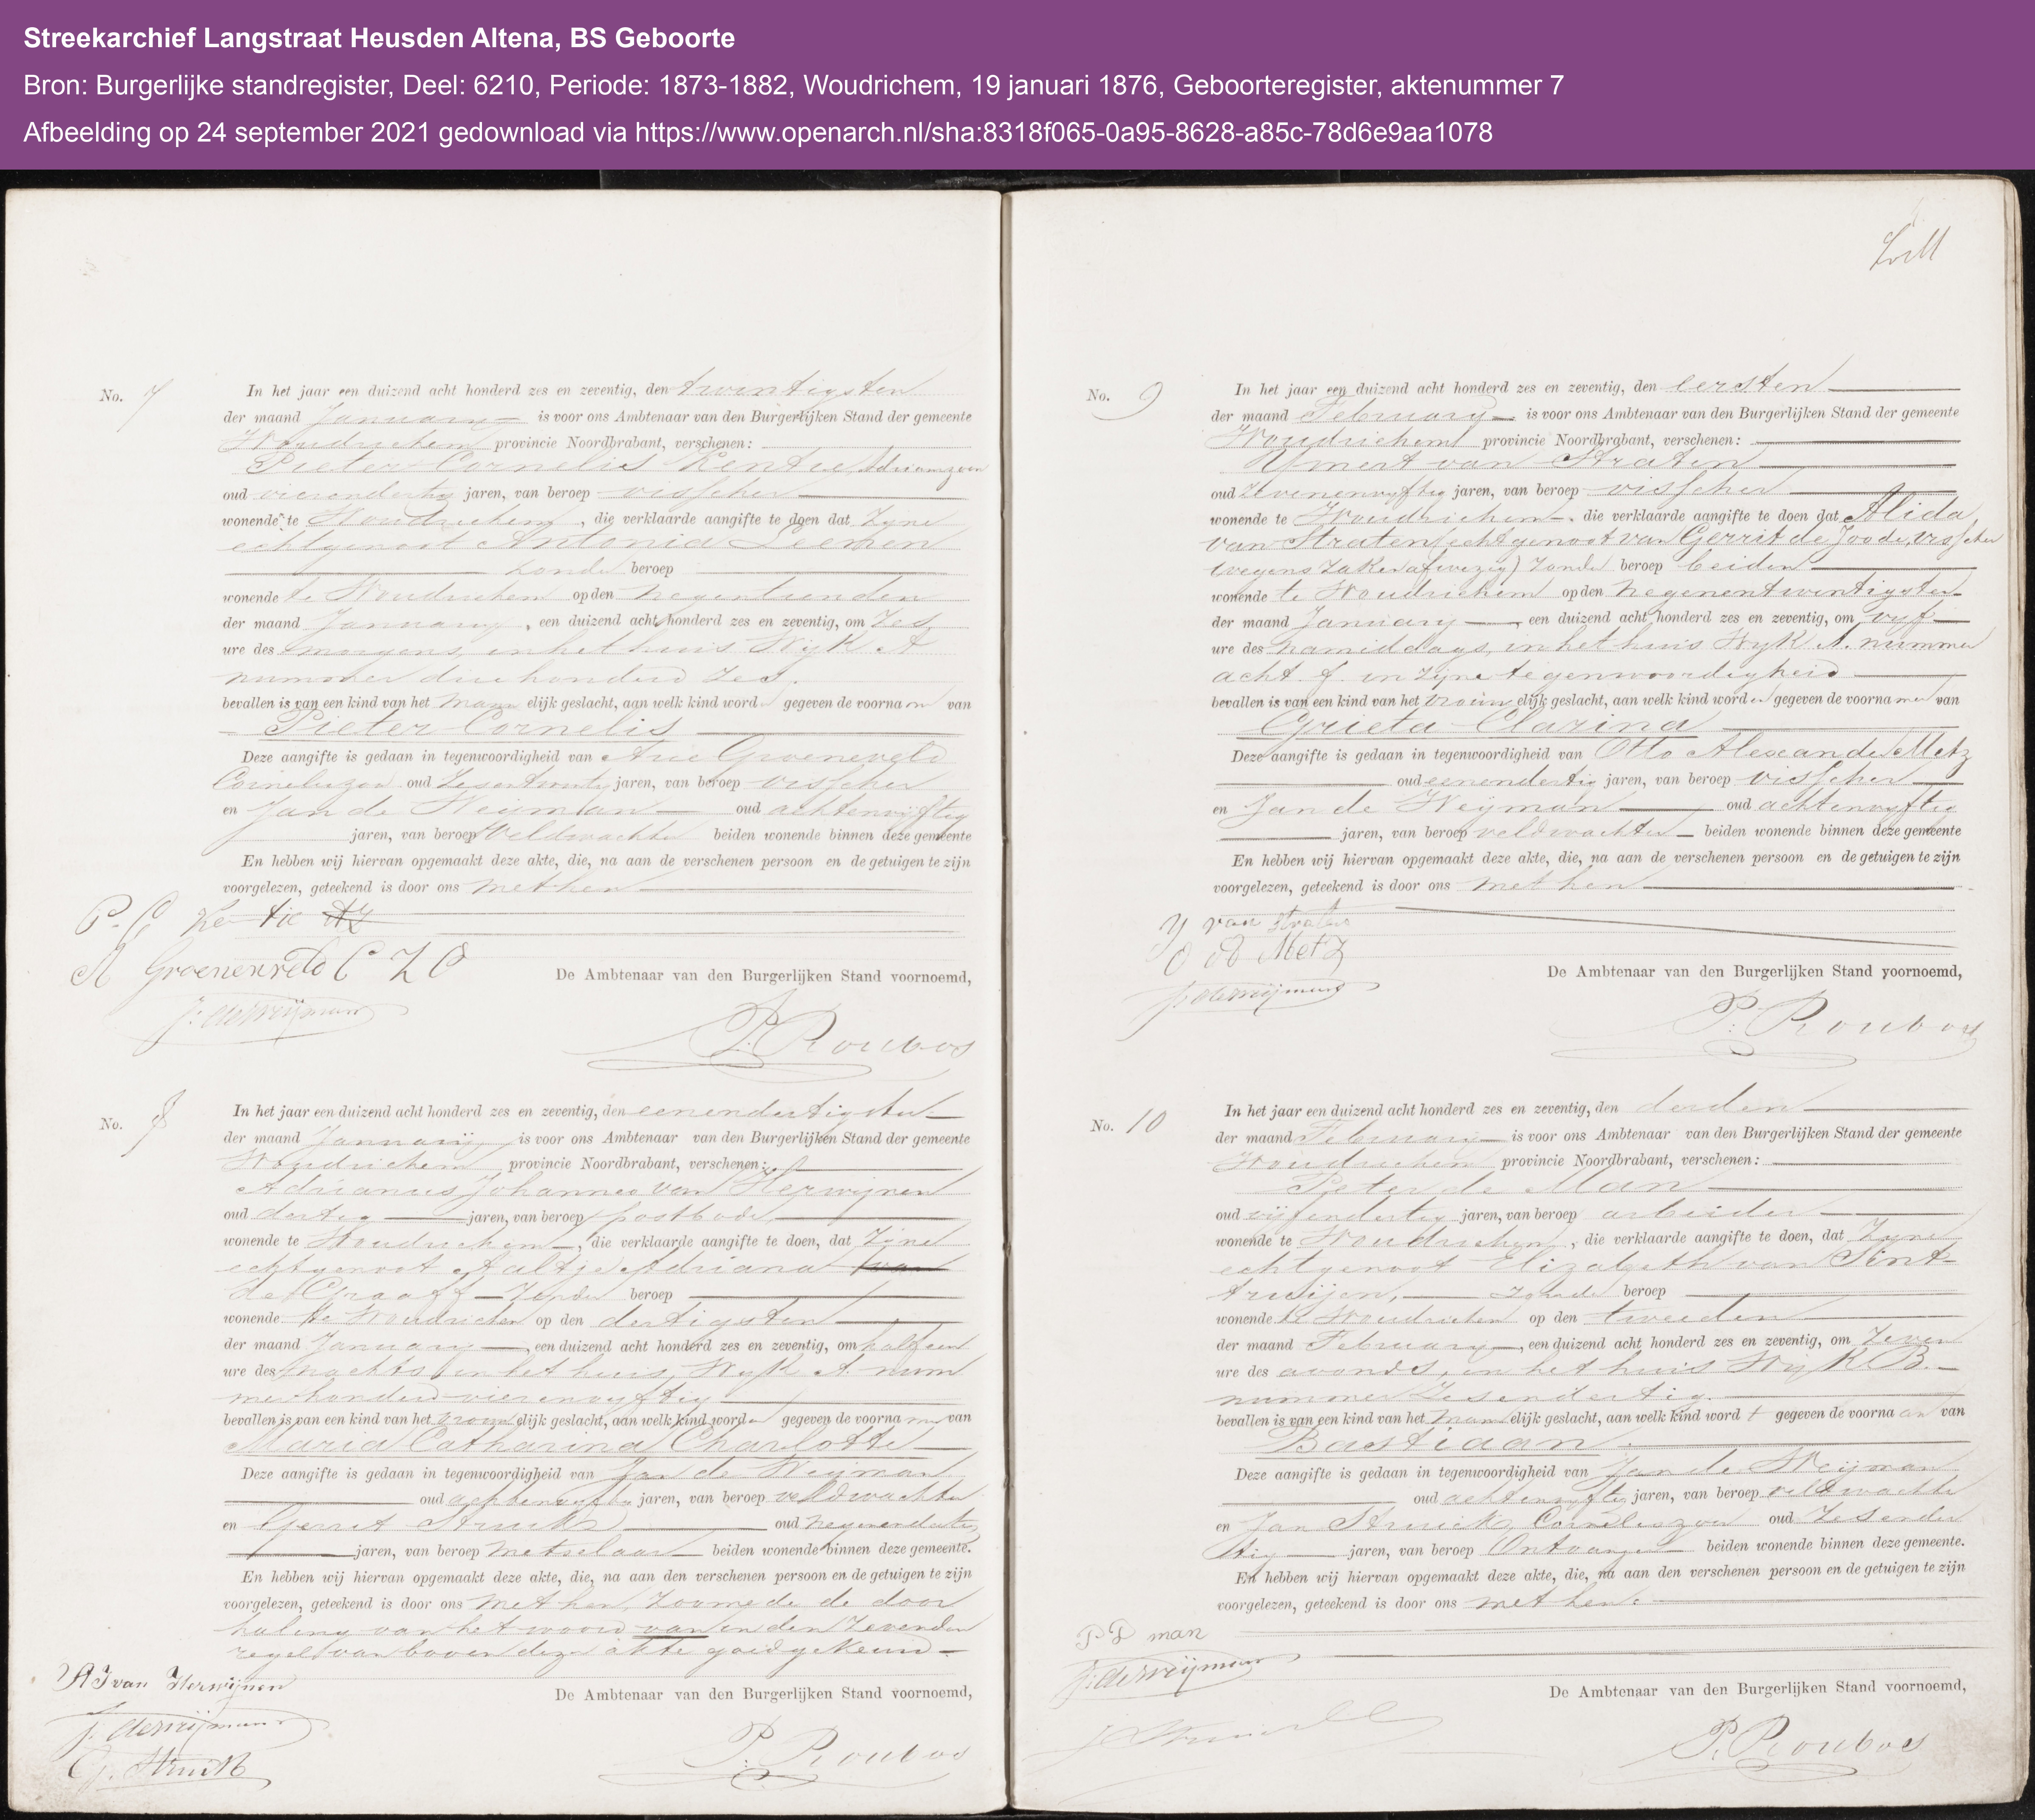 Streekarchief Langstraat Heusden Altena, BS Geboorte
Bron: Burgerlijke standregister, Deel: 6210, Periode: 1873-1882, Woudrichem, 19 januari 1876, Geboorteregister, aktenummer 7
Afbeelding op 24 september 2021 gedownload via https://www.openarch.nl/sha:8318f065-0a95-8628-a85c-78d6e9aa1078
No. 7 In het jaar een duizend acht honderd zes en zeventig, den twintigsten
der maand January is voor ons Ambtenaar van den Burgerlijken Stand der gemeente
Woudrichem provincie Noordbrabant, verschenen:
Pieter Cornelis Kentie, Adriaanszoon
oud vierendertig jaren, van beroep visscher
wonende te Woudrichem, die verklaarde aangifte te doen dat zijne
echtgenoot Antonia Leemen
zonder beroep
wonende te Woudrichem op den negentienden
der maand January, een duizend acht honderd zes en zeventig, om zes
ure des morgens, in het huis Wijk A
nummer driehonderd zes.
bevallen is van een kind van het mann elijk geslacht, aan welk kind word gegeven de voorna van
Pieter Cornelis
Deze aangifte is gedaan in tegenwoordigheid van Arie Groeneveld
Corneliszoon oud zesentwintig jaren, van beroep visscher
en Jan de Weijman oud achtenvijftig
jaren, van beroep Veldwachter beiden wonende binnen deze gemeente
En hebben wij hiervan opgemaakt deze akte, die, na aan de verschenen persoon en de getuigen te zijn
voorgelezen, geteekend is door ons met hen
P. C. Kentie AZ
A Groeneveld C Z
De Ambtenaar van den Burgerlijken Stand voornoemd,
J: deWeijman
P. Roubos
No. 8 In het jaar een duizend acht honderd zes en zeventig, den eenendertigsten
der maand January is voor ons Ambtenaar van den Burgerlijken Stand der gemeente
Woudrichem provincie Noordbrabant, verschenen:
Adrianus Johannes van Herwijnen
oud dertig jaren, van beroep postbode,
wonende te Woudrichem, die verklaarde aangifte te doen, dat zijne
echtgenoot Aaltje Adriana van
de Graaff zonder beroep
wonende te Woudrichem op den dertigsten
der maand January, een duizend acht honderd zes en zeventig, om half een
ure des nachts, in het huis, Wijk A num
mer honderd vierenvyftig
bevallen is van een kind van het vrouw elijk geslacht, aan welk kind worden gegeven de voorna men van
Maria Catharina Charlotte
Deze aangifte is gedaan in tegenwoordigheid van Jan de Weijman
oud achtenvyftig jaren, van beroep veldwachter
en Gerrit Struik oud negenendertig
jaren, van beroep metselaar beiden wonende binnen deze gemeente.
En hebben wij hiervan opgemaakt deze akte, die, na aan den verschenen persoon en de getuigen te zijn
voorgelezen, geteekend is door ons met hen, zoomede de door
haling van het woord van in den zevenden
regel van boven deze akte goedgekeurd
A J van Herwijnen
De Ambtenaar van den Burgerlijken Stand voornoemd,
J: deWeijman
G. Struik
P. Roubos
No. 9 In het jaar een duizend acht honderd zes en zeventig, den eersten
der maand February is voor ons Ambtenaar van den Burgerlijken Stand der gemeente
Woudrichem provincie Noordbrabant, verschenen:
Ymert van Straten
oud zevenenvyftig jaren, van beroep visscher
wonende te Woudrichem, die verklaarde aangifte te doen dat Alida
van Straten (echtgenoot van Gerrit de Joode, visscher
wegens zaken afwezig) zonder beroep beiden
wonende te Woudrichem op den negenentwintigsten
der maand January, een duizend acht honderd zes en zeventig, om vyf
ure des namiddags, in het huis Wyk A. nummer
acht f. in zijne tegenwoordigheid
bevallen is van een kind van het vrouw elijk geslacht, aan welk kind worden gegeven de voorna men van
Grieta Clarina
Deze aangifte is gedaan in tegenwoordigheid van Otto Alexander Metz
oud eenendertig jaren, van beroep visscher
en Jan de Weyman oud achtenvyftig
jaren, van beroep veldwachter beiden wonende binnen deze gemeente
En hebben wij hiervan opgemaakt deze akte, die, na aan de verschenen persoon en de getuigen te zijn
voorgelezen, geteekend is door ons met hen
Y van Straten
Metz
De Ambtenaar van den Burgerlijken Stand voornoemd,
J: deWeijman
P: Roubos
No. 10 In het jaar een duizend acht honderd zes en zeventig, den derden
der maand February is voor ons Ambtenaar van den Burgerlijken Stand der gemeente
Woudrichem provincie Noordbrabant, verschenen:
Peter de Man
oud vijfendertig jaren, van beroep arbeider
wonende te Woudrichem, die verklaarde aangifte te doen, dat zyne
echtgenoot Elizabeth van Sint
truijen, zonder beroep
wonende te Woudrichem op den tweeden
der maand February, een duizend acht honderd zes en zeventig, om zeven
ure des avonds, in het huis Wijk B.
nummer zesendertig.
bevallen is van een kind van het mann elijk geslacht, aan welk kind word t gegeven de voorna am van
Bastiaan
Deze aangifte is gedaan in tegenwoordigheid van Jan de Weijman
oud achtenvyftig jaren, van beroep veldwachter
en Jan Struik, Corneliszoon oud zesender
tig jaren, van beroep Ontvanger beiden wonende binnen deze gemeente.
En hebben wij hiervan opgemaakt deze akte, die, na aan den verschenen persoon en de getuigen te zijn
voorgelezen, geteekend is door ons met hen.
P D man
J: deWeijman
De Ambtenaar van den Burgerlijken Stand voornoemd,
J Struik
P. Roubos